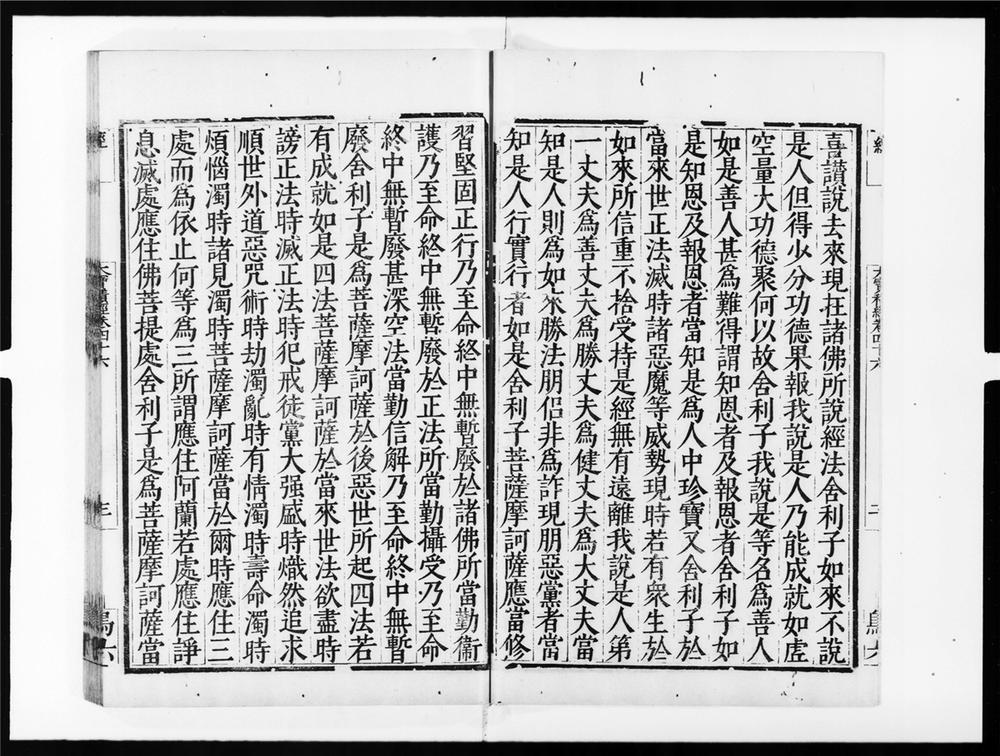 喜讚說去來現在諸佛所說經法舍利子如來不說
是人但得少分功德果報我說是人乃能成就如虛
空量大功德聚何以故舍利子我說是等名為善人
如是善人甚為難得謂知恩者及報恩者舍利子如
是知恩及報恩者當知是為人中珍寶又舍利子於
當來世正法滅時諸惡魔等威勢現時若有眾生於
如來所信重不捨受持是經無有遠離我說是人第
一丈夫為善丈夫為勝丈夫為健丈夫為大丈夫當
知是人則為如來勝法朋侶非為詐現朋惡黨者當
知是人行實行者如是舍利子菩薩摩訶薩應當修
習堅固正行乃至命終中無暫廢於諸佛所當勤衞
護乃至命終中無暫廢於正法所當勤攝受乃至命
終中無暫廢甚深空法當勤信解乃至命終中無暫
廢舍利子是為菩薩摩訶薩於後惡世所起四法若
有成就如是四法菩薩摩訶薩於當來世法欲盡時
謗正法時滅正法時犯戒徒黨大强盛時熾然追求
順世外道惡咒術時劫濁亂時有情濁時壽命濁時
煩惱濁時諸見濁時菩薩摩訶薩當於爾時應住三
處而為依止何等為三所謂應住阿蘭若處應住諍
息滅處應住佛菩提處舍利子是為菩薩摩訶薩當
經
大寶積經卷四十六
三
鳥六